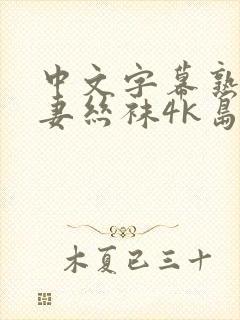 中文字幕熟
妻丝袜4K岛
木夏已三十